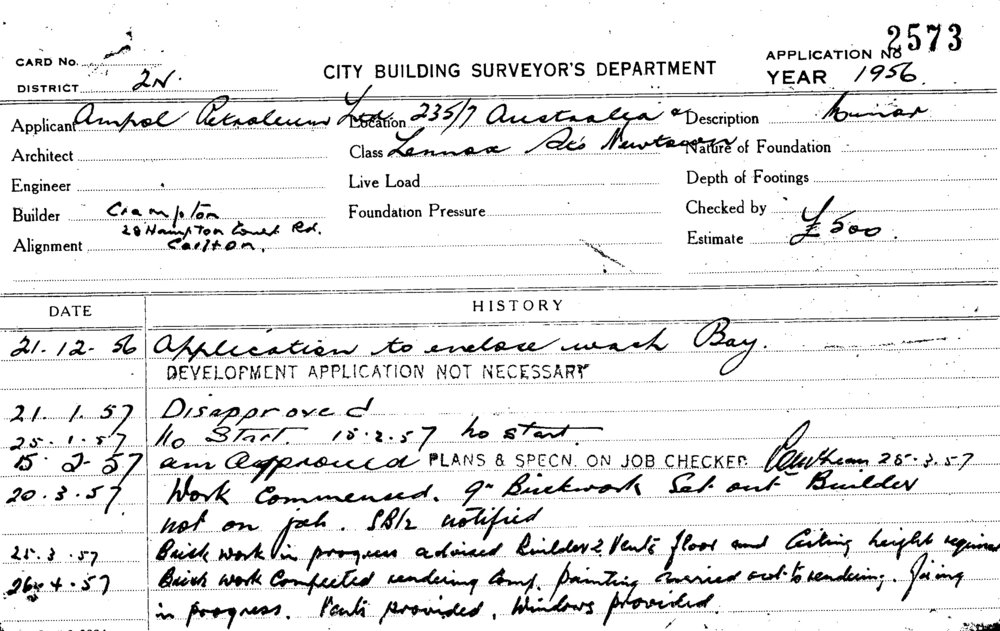 2573
CARD No.
APPLICATION No
DISTRICT 2N.
CITY BUILDING SURVEYOR'S DEPARTMENT
YEAR 1956.
Applicant Ampol Petroleum Ltd Location 235/7 Australia & Description Minor
Architect Class Lennox Sts Newtown Nature of Foundation
Engineer Live Load Depth of Footings
Builder Crampton Foundation Pressure Checked by
28 Hampton Court Rd.
Alignment Carlton. Estimate £500.
DATE HISTORY
21.12.56 Application to enclose wash Bay.
DEVELOPMENT APPLICATION NOT NECESSARY
21.1.57 Disapproved
25.1.57 No Start. 15.2.57 no start.
15.2.57 am Approved PLANS & SPECN. ON JOB CHECKED 25.3.57
20.3.57 Work Commenced. 9" Brickwork Set out Builder
not on job. notified
25.3.57 Brick work in progress advised Builder 2 Vents floor and Ceiling height required
26.4.57 Brick work Completed rendering Comp. painting carried out to rendering.
in progress. Vents provided. Windows provided.